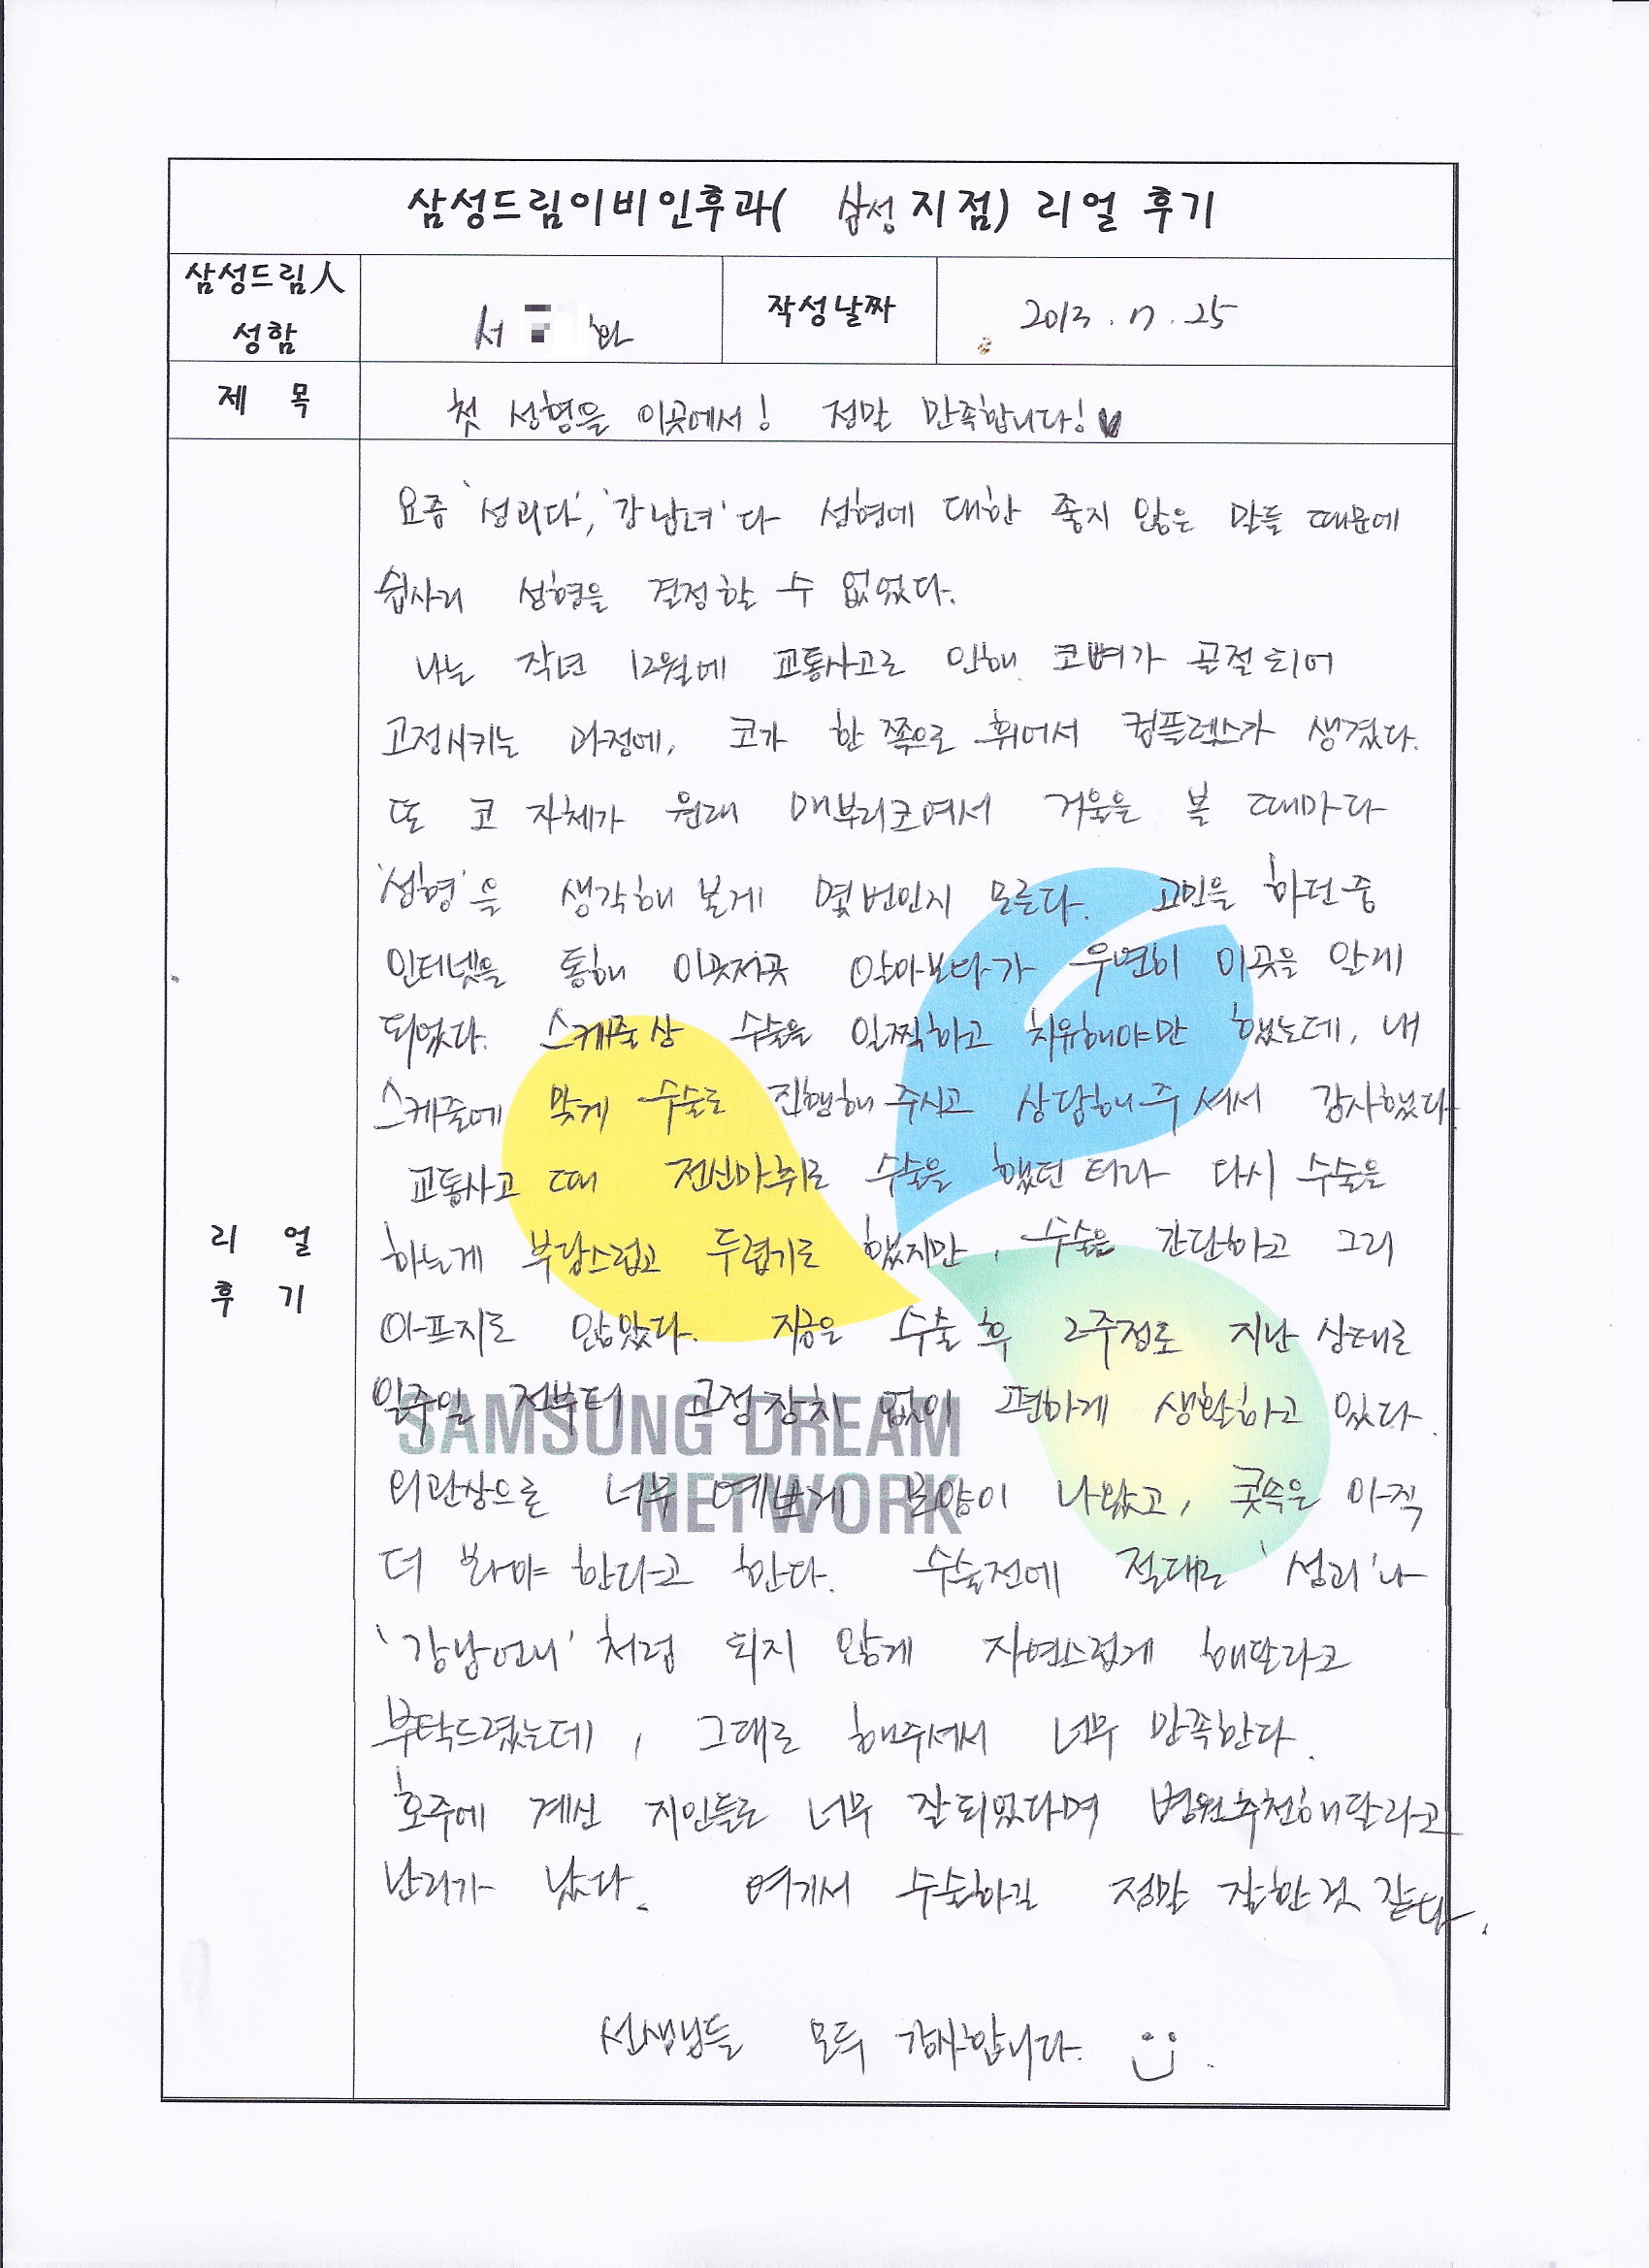 삼성드림이비인후과( 삼성 지점) 리얼 후기
삼성드림人 성함
서 화
작성날짜
2013. 7. 25
제 목
첫 성형을 이곳에서! 정말 만족합니다!♥
리 얼 후 기
요즘 '성괴다', '강남녀'다 성형에 대한 좋지 않은 말들 때문에
쉽사리 성형을 결정할 수 없었다.
나는 작년 12월에 교통사고로 인해 코뼈가 골절되어
고정시키는 과정에, 코가 한 쪽으로 휘어서 컴플렉스가 생겼다.
또 코 자체가 원래 매부리코여서 거울을 볼 때마다
'성형'을 생각해 본게 몇 번인지 모른다. 고민을 하던 중
인터넷을 통해 이곳저곳 알아보다가 우연히 이곳을 알게
되었다. 스케쥴상 수술을 일찍하고 치유해야만 했는데, 내
스케쥴에 맞게 수술도 진행해 주시고 상담해 주셔서 감사했다
교통사고 때 전신마취로 수술을 했던 터라 다시 수술을
하는게 부담스럽고 두렵기도 했지만, 수술은 간단하고 그리
아프지도 않았다. 지금은 수술 후 2주정도 지난 상태로
일주일 전부터 고정장치 없이 편하게 생활하고 있다.
외관상으론 너무 예쁘게 모양이 나왔고, 콧속은 아직
더 봐야 한다고 한다. 수술전에 절대로 '성괴'나
'강남언니'처럼 되지 않게 자연스럽게 해달라고
부탁드렸는데, 그대로 해주셔서 너무 만족한다.
호주에 계신 지인들도 너무 잘되었다며 병원추천해달라고
난리가 났다. 여기서 수술하길 정말 잘한것 같다.
선생님들 모두 감사합니다.
SAMSUNG DREAM
NETWORK